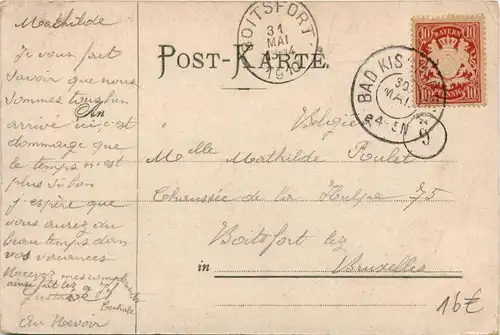 Mathilde
Je vous fait
savoir que nous
sommes tous bien
arrivé ici, c'est
dommage que
le temps n'est
plus si bon
j'espère que
vous aurez du
beau temps dans
vos vacances
Recevez mes
Au Revoir
POST-KARTE.
BOITSFORT
31
MAI
BAYERN
10 10
10 PFENNIG 10
BAD KIS
30
MAI
9
An
Belgique
Melle Mathilde Poulet
Chaussée de la Hulpe 75
Boitsfort lez
in Bruxelles
16€